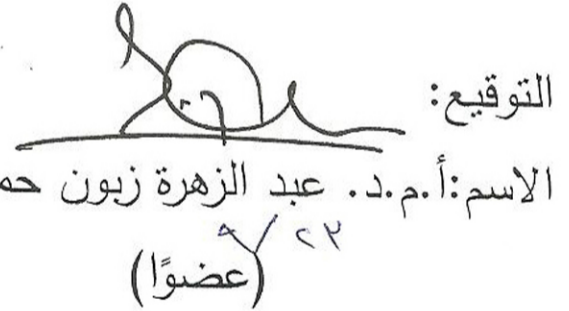 التوقيع:
الاسم:أ.م.د. عبد الزهرة زبون
٢٣ / ٩
(عضوًا)